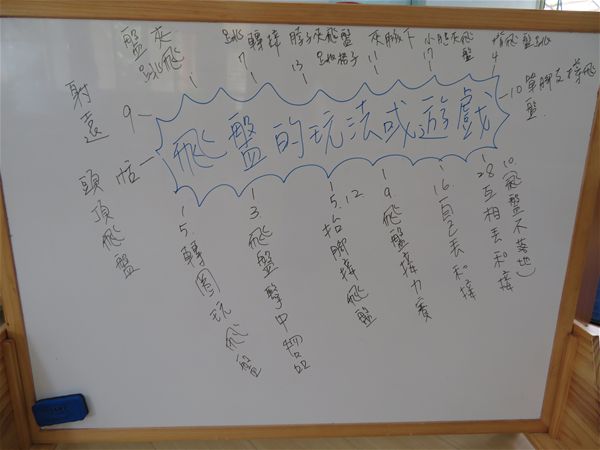 飛盤的玩法或遊戲
夾飛盤跳
7 轉接
13 脖子夾飛盤跳格子
11 夾腋下
17 小腿夾飛盤
4 背飛盤跳
10 單腳支撐飛盤
9 射遠
頭頂飛盤
5. 轉圈玩飛盤
3. 飛盤擊中
5. 12 抬腳接飛盤
9. 飛盤接力賽
16 自己丟和接
28 互相丟和接
10. (飛盤不落地)